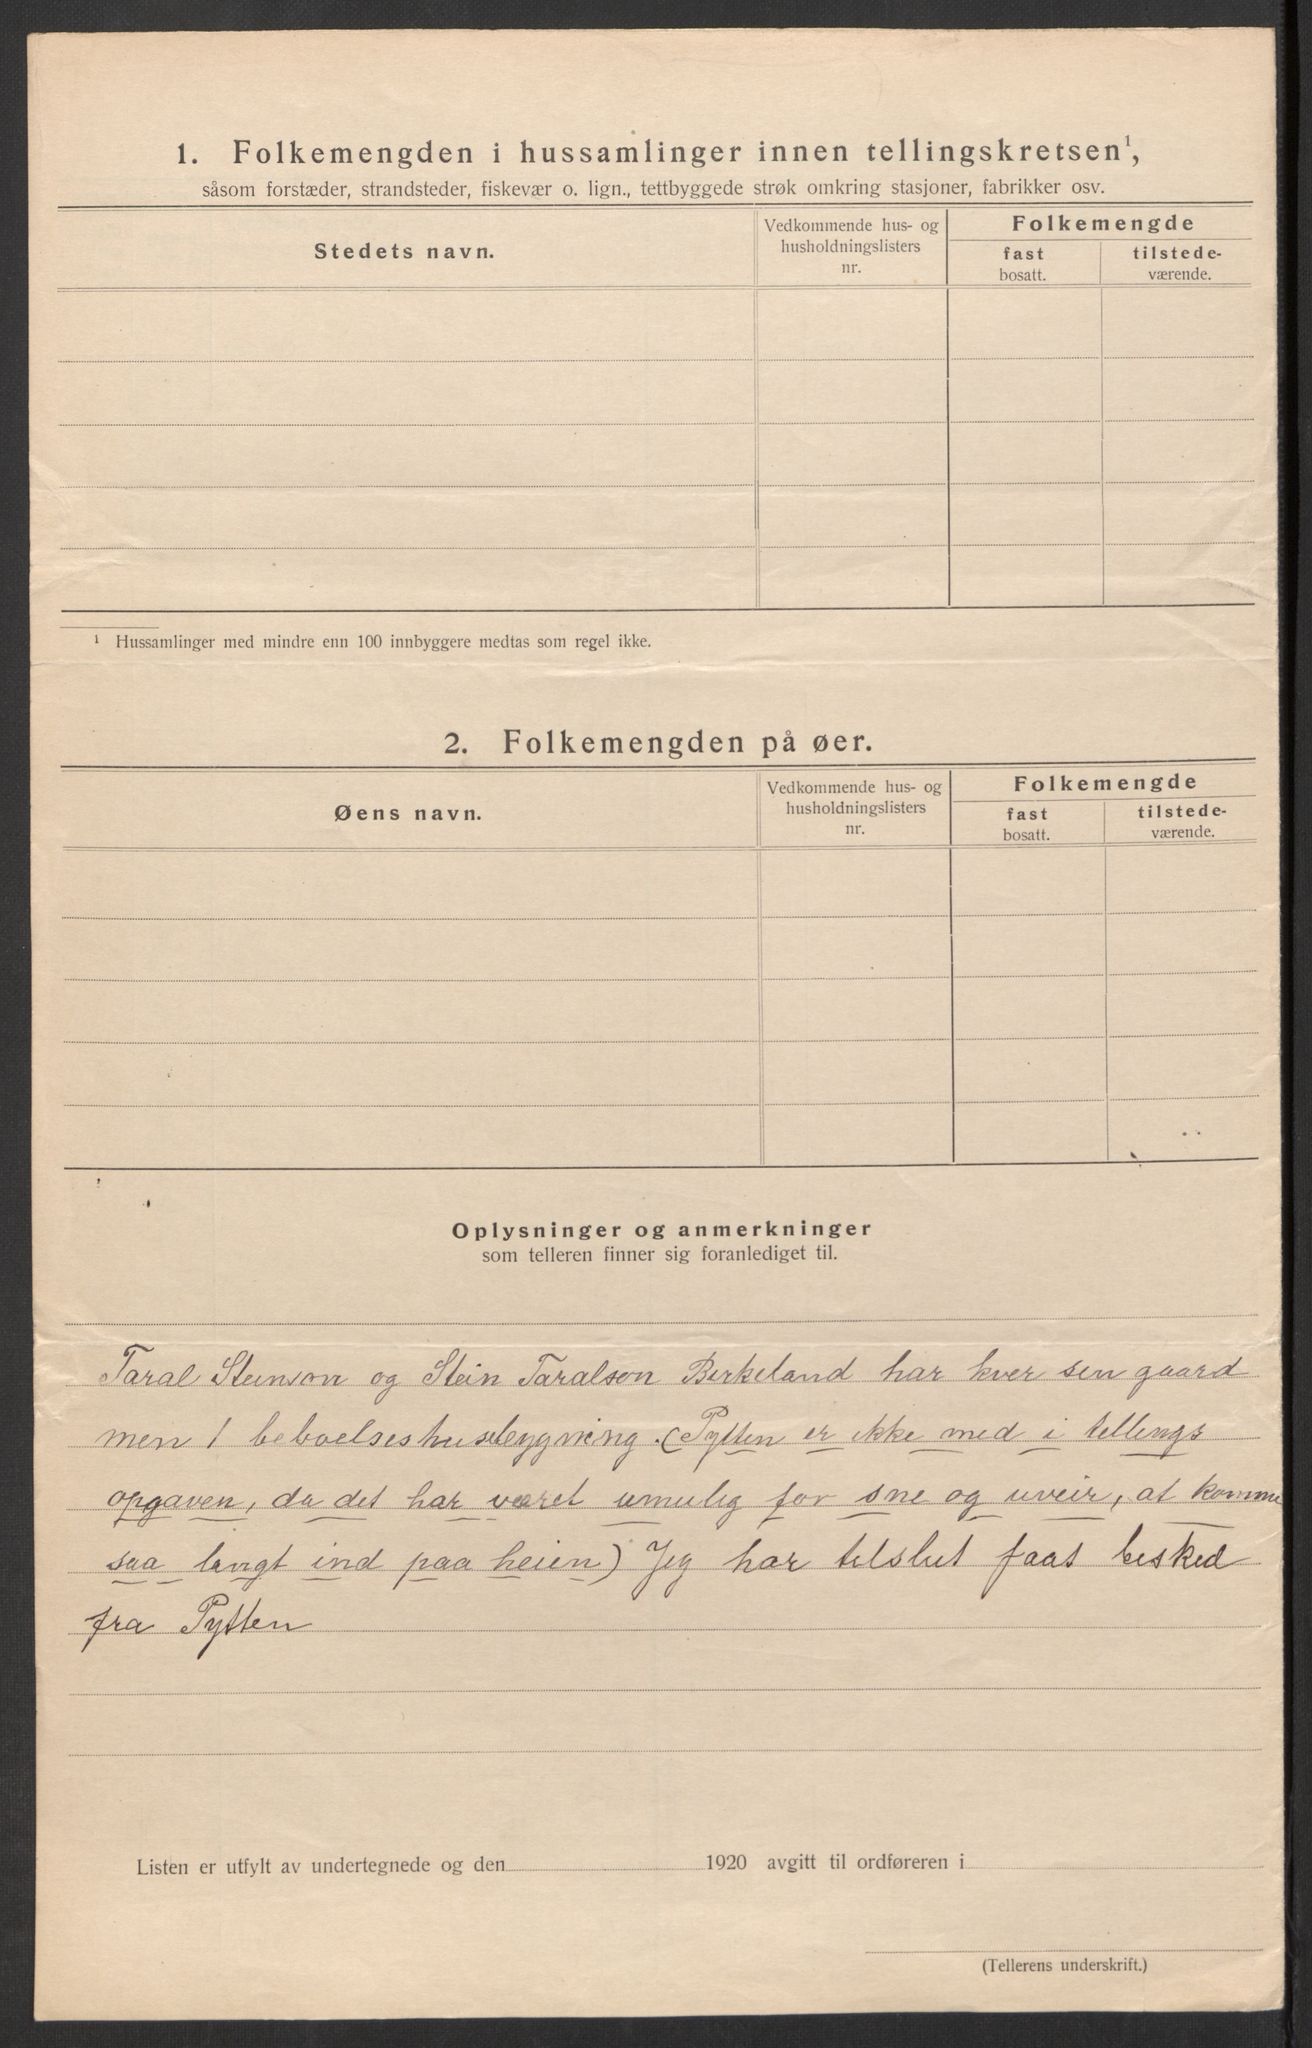 1. Folkemengden i hussamlinger innen tellingskretsen¹,
såsom forstæder, strandsteder, fiskevær o. lign., tettbyggede strøk omkring stasjoner, fabrikker osv.
Stedets navn.
Vedkommende hus- og
husholdningslisters
nr.
Folkemengde
fast
bosatt.
tilstede-
værende.
¹ Hussamlinger med mindre enn 100 innbyggere medtas som regel ikke.
2. Folkemengden på øer.
Øens navn.
Vedkommende hus- og
husholdningslisters
nr.
Folkemengde
fast
bosatt.
tilstede-
værende.
Oplysninger og anmerkninger
som telleren finner sig foranlediget til.
Taral Steinson og Stein Taralson Birkeland har hver sin gaard
men 1 beboelseshusbygning. (Pytten er ikke med i tellings
opgaven, da det har været umulig for sne og uveir, at komme
saa langt ind paa heien) Jeg har tilslut faat besked
fra Pytten
Listen er utfylt av undertegnede og den 1920 avgitt til ordføreren i
(Tellerens underskrift.)